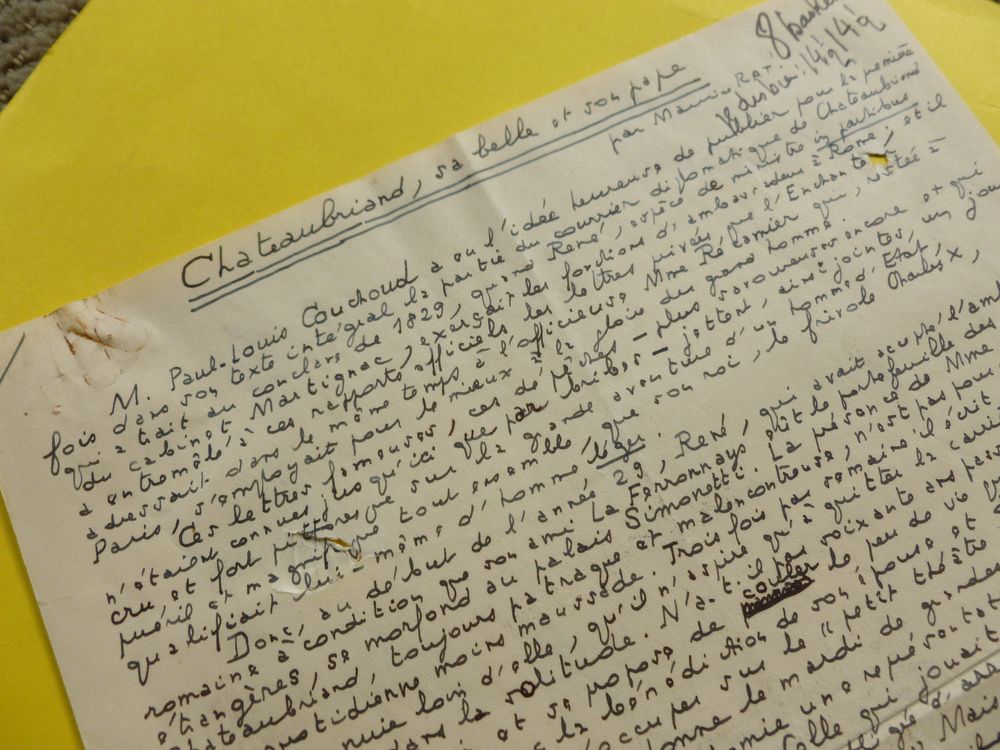 8 baske
14q 14q
Chateaubriand, sa belle et son pape
par Maurice RAT
M. Paul-Louis Couchoud a eu l'idée heureuse de publier pour la première
fois dans son texte intégral la partie du courrier diplomatique de Chateaubriand
qui a trait au conclave de 1829, quand René, espèce de ministre in partibus
du cabinet Martignac, exerçait les fonctions d'ambassadeur à Rome, et il
a entremêlé à ces rapports officiels les lettres privées que l'Enchanteur
adressait dans le même temps à l'officieuse Mme Récamier qui, restée à
Paris, s'employait pour le mieux à la gloire du grand homme.
Ces lettres fameuses, ces dépêches plus savoureuses encore et qui
n'étaient connues jusqu'ici que par bribes jettent, ainsi jointes, un jour
cru et fort pittoresque sur la grande aventure d'un homme d'Etat,
puéril et magnifique tout ensemble, que son roi, le frivole Charles X,
qualifiait lui-même d'homme léger.
Donc, au début de l'année 29, René, qui avait accepté l'am
romaine à condition que son ami La Ferronnays eût le portefeuille des
étrangères, se morfond au palais Simonetti. La présence de Mme
Chateaubriand, toujours patraque et malencontreuse, n'est pas pour
quotidienne moins maussade. Trois fois par semaine il écrit
nuie loin d'elle, qu'il n'aspire qu'à quitter la carriè
dans la solitude. N'a-t-il pas soixante ans pass
et se propose de couler le peu de vie qu
la bénédiction de son épouse, et
occupe sur le "petit théâtre
onne le mardi de grandes
mie une représentat
elle qui jouait
Mais